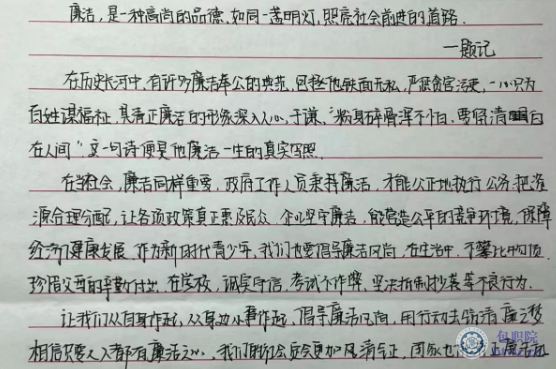 廉洁，是一种高尚的品德，如同一盏明灯，照亮社会前进的道路.
一题记
在历史长河中，有许多廉洁奉公的典范，包拯他铁面无私，严惩贪官污吏，一心只为
百姓谋福祉，其清正廉洁的形象深入人心，于谦，"粉身碎骨浑不怕，要留清白
在人间"，这一句诗便是他廉洁一生的真实写照.
在当社会，廉洁同样重要，政府工作人员秉持廉洁，才能公正地执行公务，把资
源合理分配，让各项政策真正惠及民众，企业坚守廉洁，能营造公平的竞争环境，保障
经济健康发展，作为新时代青少年，我们也要倡导廉洁风尚，在生活中，不攀比
珍惜父母的辛勤付出，在学校，诚实守信，考试不作弊，坚决抵制抄袭等不良行为.
让我们从自身作起，从身边小事作起，倡导廉洁风尚，用行动去
相信只要人人都有廉洁之心，我们的社会定会更加风清气正，国家也
包职院